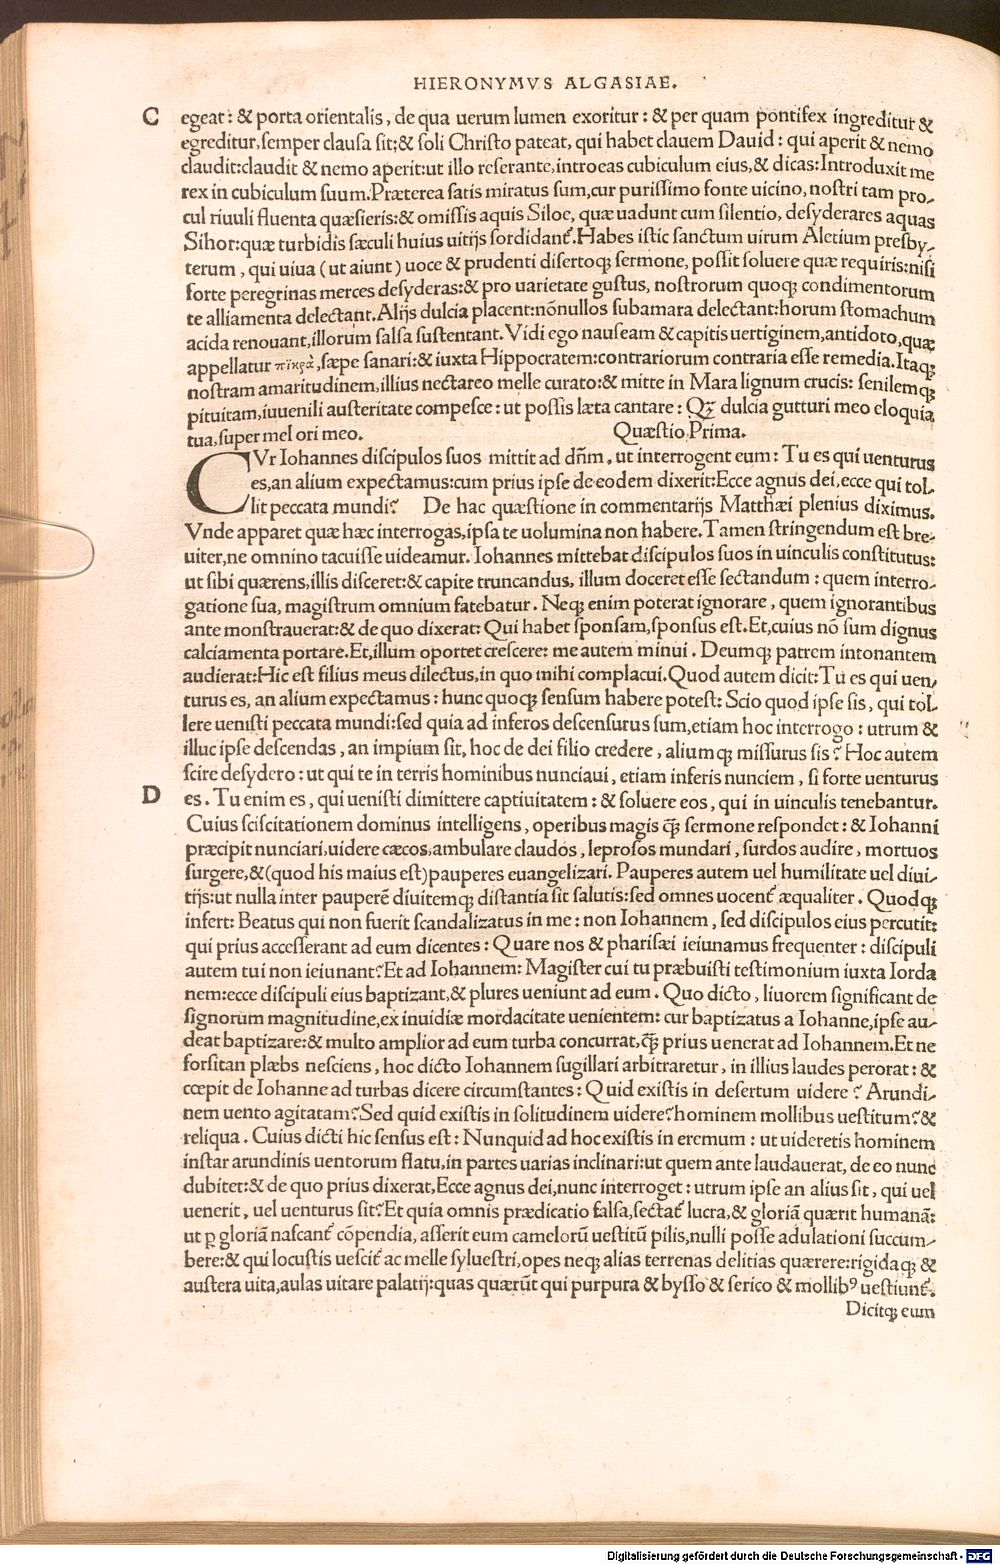 HIERONYMVS ALGASIAE.
C
egeat: & porta orientalis, de qua uerum lumen exoritur: & per quam pontifex ingreditur &
egreditur, semper clausa sit: & soli Christo pateat, qui habet clauem Dauid: qui aperit & nemo
claudit: claudit & nemo aperit: ut illo reserante, introeas cubiculum eius, & dicas: Introduxit me
rex in cubiculum suum. Præterea satis miratus sum, cur purissimo fonte uicino, nostri tam pro-
cul riuuli fluenta quæsieris: & omissis aquis Siloe, quæ uadunt cum silentio, desyderares aquas
Sihor: quæ turbidis sæculi huius uitijs sordidanť. Habes istic sanctum uirum Aletium presby-
terum, qui uiua (ut aiunt) uoce & prudenti disertoq; sermone, possit soluere quæ requiris: nisi
forte peregrinas merces desyderas: & pro uarietate gustus, nostrorum quoq; condimentorum
te alliamenta delectant. Alijs dulcia placent: nōnullos subamara delectant: horum stomachum
acida renouant, illorum salsa sustentant. Vidi ego nauseam & capitis uertiginem, antidoto, quæ
appellatur πικρὰ, sæpe sanari: & iuxta Hippocratem: contrariorum contraria esse remedia. Itaq;
nostram amaritudinem, illius nectareo melle curato: & mitte in Mara lignum crucis: senilemq;
pituitam, iuuenili austeritate compesce: ut possis læta cantare: Qꝫ dulcia gutturi meo eloquia
tua, super mel ori meo. Quæstio Prima.
CVr Iohannes discipulos suos mittit ad dñm, ut interrogent eum: Tu es qui uenturus
es, an alium expectamus: cum prius ipse de eodem dixerit: Ecce agnus dei, ecce qui tol-
lit peccata mundi? De hac quæstione in commentarijs Matthæi plenius diximus.
Vnde apparet quæ hæc interrogas, ipsa te uolumina non habere. Tamen stringendum est bre-
uiter, ne omnino tacuisse uideamur. Iohannes mittebat discipulos suos in uinculis constitutus:
ut sibi quærens, illis disceret: & capite truncandus, illum doceret esse sectandum: quem interro-
gatione sua, magistrum omnium fatebatur. Neq; enim poterat ignorare, quem ignorantibus
ante monstrauerat: & de quo dixerat: Qui habet sponsam, sponsus est. Et, cuius nō sum dignus
calciamenta portare. Et, illum oportet crescere: me autem minui. Deumq; patrem intonantem
audierat: Hic est filius meus dilectus, in quo mihi complacui. Quod autem dicit: Tu es qui uen-
turus es, an alium expectamus: hunc quoq; sensum habere potest: Scio quod ipse sis, qui tol-
lere uenisti peccata mundi: sed quia ad inferos descensurus sum, etiam hoc interrogo: utrum &
illuc ipse descendas, an impium sit, hoc de dei filio credere, aliumq; missurus sis? Hoc autem
scire desydero: ut qui te in terris hominibus nunciaui, etiam inferis nunciem, si forte uenturus
D
es. Tu enim es, qui uenisti dimittere captiuitatem: & soluere eos, qui in uinculis tenebantur.
Cuius sciscitationem dominus intelligens, operibus magis q̃ꝫ sermone respondet: & Iohanni
præcipit nunciari, uidere cæcos, ambulare claudos, leprosos mundari, surdos audire, mortuos
surgere, & (quod his maius est) pauperes euangelizari. Pauperes autem uel humilitate uel diui-
tijs: ut nulla inter pauperē diuitemq; distantia sit salutis: sed omnes uocenť æqualiter. Quodq;
infert: Beatus qui non fuerit scandalizatus in me: non Iohannem, sed discipulos eius percutit:
qui prius accesserant ad eum dicentes: Quare nos & pharisæi ieiunamus frequenter: discipuli
autem tui non ieiunant? Et ad Iohannem: Magister cui tu præbuisti testimonium iuxta Iorda
nem: ecce discipuli eius baptizant, & plures ueniunt ad eum. Quo dicto, liuorem significant de
signorum magnitudine, ex inuidiæ mordacitate uenientem: cur baptizatus a Iohanne, ipse au-
deat baptizare: & multo amplior ad eum turba concurrat, q̃ꝫ prius uenerat ad Iohannem. Et ne
forsitan plæbs nesciens, hoc dicto Iohannem sugillari arbitraretur, in illius laudes perorat: &
cœpit de Iohanne ad turbas dicere circumstantes: Quid existis in desertum uidere? Arundi-
nem uento agitatam? Sed quid existis in solitudinem uidere? hominem mollibus uestitum? &
reliqua. Cuius dicti hic sensus est: Nunquid ad hoc existis in eremum: ut uideretis hominem
instar arundinis uentorum flatu, in partes uarias inclinari: ut quem ante laudauerat, de eo nunc
dubitet: & de quo prius dixerat, Ecce agnus dei, nunc interroget: utrum ipse an alius sit, qui uel
uenerit, uel uenturus sit? Et quia omnis prædicatio falsa, sectať lucra, & gloriā quærit humanā:
ut ꝑ gloriā nascanť cōpendia, asserit eum camelorū uestitū pilis, nulli posse adulationi succum-
bere: & qui locustis uesciť ac melle syluestri, opes neq; alias terrenas delitias quærere: rigidaq; &
austera uita, aulas uitare palatij: quas quærūt qui purpura & bysso & serico & mollibꝰ uestiunť.
Dicitq; eum
Digitalisierung gefördert durch die Deutsche Forschungsgemeinschaft - DFG